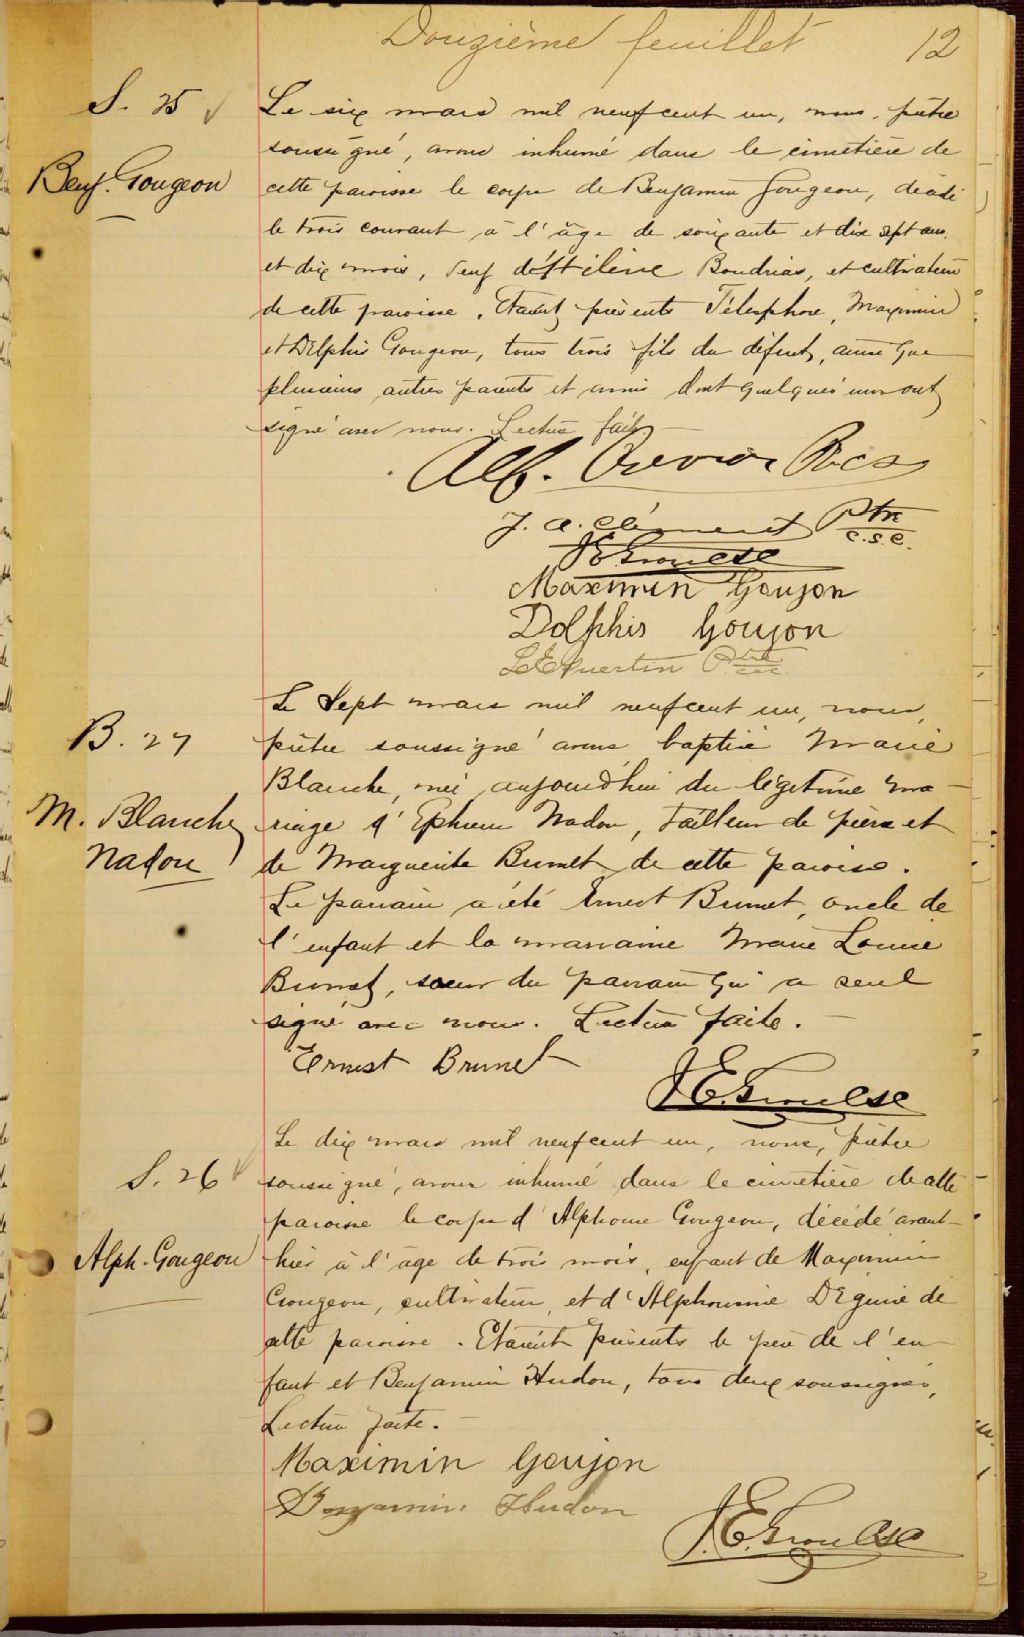 Douzième feuillet 12
S. 25
Benj. Gougeon
Le six mars mil neufcent un, nous, prêtre
soussigné, avons inhumé dans le cimetière de
cette paroisse le corps de Benjamin Gougeon, décédé
le trois courant à l'âge de soixante et dix sept ans
et dix mois, veuf d'Hélène Boudrias, et cultivateur
de cette paroisse. Etaient présents Télesphore, Maximin
et Delphis Gougeon, tous trois fils du défunt, ainsi que
plusieurs autres parents et amis dont quelques uns ont
signé avec nous. Lecture faite
Alf.
J. A. Clément Ptre
c.s.c.
J E Groulse
Maximin Goujon
Dolphis Goujon
Ptre
B. 27
M. Blanche
Nadon
Le sept mars mil neufcent un, nous,
prêtre soussigné avons baptisé Marie
Blanche, née aujourd'hui du légitime ma-
riage d'Ephrem Nadon, tailleur de pierre et
de Marguerite Brunet de cette paroisse.
Le parrain a été Ernest Brunet, oncle de
l'enfant et la marraine Marie Louise
Brunet, soeur du parrain qui a seul
signé avec nous. Lecture faite.
Ernest Brunet
J. E. Groulse
S. 26
Alph. Gougeon
Le dix mars mil neufcent un, nous, prêtre
soussigné, avons inhumé dans le cimetière de cette
paroisse le corps d'Alphonse Gougeon, décédé avant-
hier à l'âge de trois mois, enfant de Maximin
Gougeon, cultivateur, et d'Alphonsine Déguire de
cette paroisse. Etaient présents le père de l'en
fant et Benjamin Hudon, tous deux soussignés,
Lecture faite.
Maximin Goujon
Benjamin Hudon
J. E. Groulse